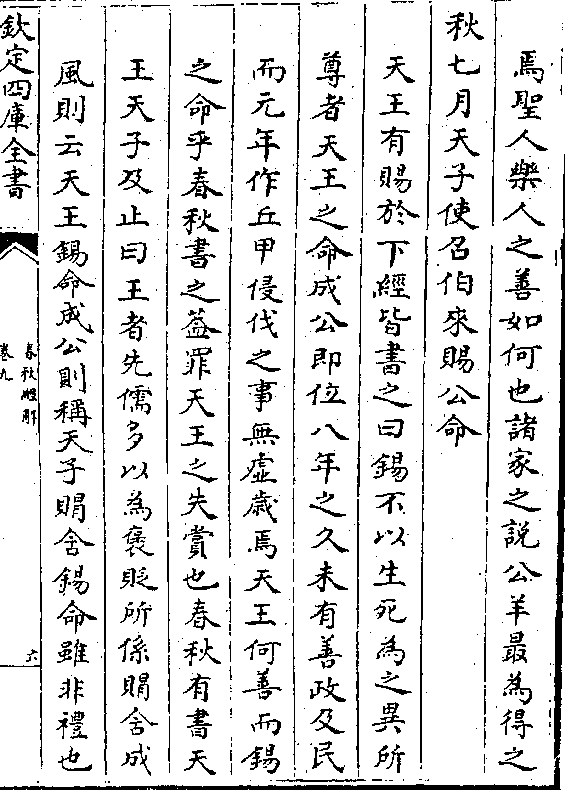 焉聖人樂人之善如何也諸家之說公羊最為得之
秋七月天子使召伯來賜公命
天王有賜於下經皆書之曰錫不以生死為之異所
尊者天王之命成公即位八年之久未有善政及民
而元年作丘甲侵伐之事無虛歲焉天王何善而錫
之命乎春秋書之葢罪天王之失賞也春秋有書天
王天子及止曰王者先儒多以為褒貶所係賵含成
風則云天王錫命成公則稱天子賵含錫命雖非禮也
欽定四庫全書
春秋經解
卷九
六